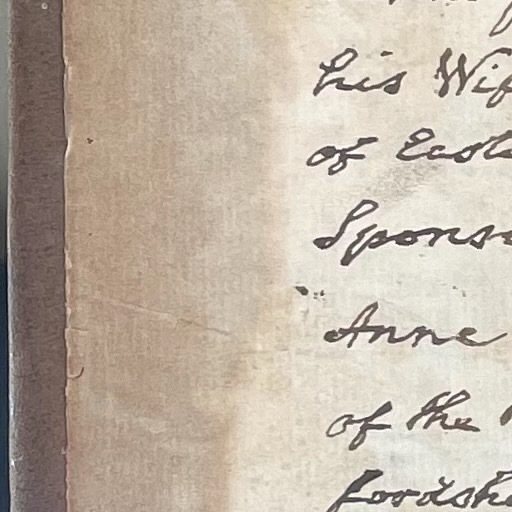 his Wif
of East
Sponso
Anne
of the
fordsh